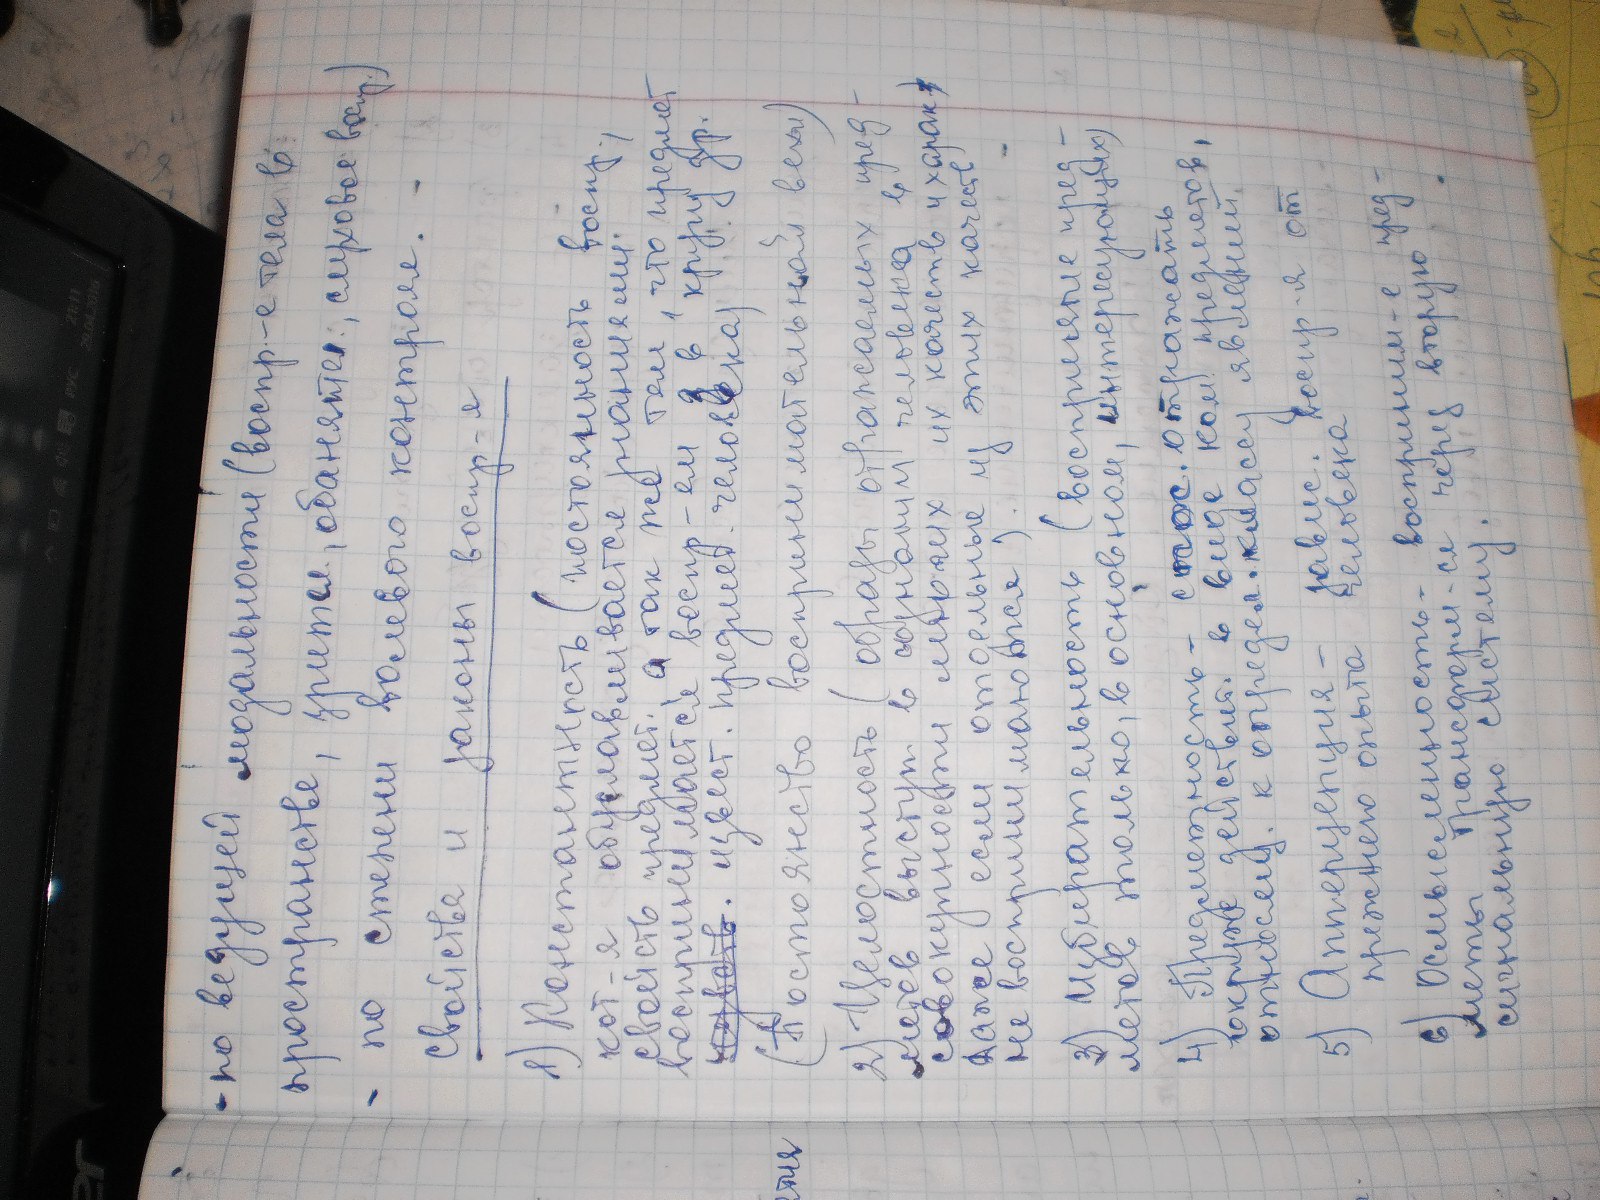 - по ведущей модальности (воспр.-е тела в
пространстве, зрител., обонятел., слуховое воспр.)
- по степени волевого контроля. -
свойства и законы воспр-я
1) Константность (постоянность воспр.,
кот-я обуславливается знаниями.
свойств предмет. а так же тем, что предмет
воспринимается воспр-ем в кругу др.
цвет. предмет. человека)
(Постоянство воспринимательной вехи)
2) Целостность (образы отражаемых пред-
метов выступ. в сознании человека в
совокупности многих их качеств и характ
даже если отдельные из этих качеств
не воспринимаются).
3) Избирательность (восприятие пред-
метов только, в основном, интересующих)
4) Предметность - спос. отражать
окруж. действит. в виде ком. предметов,
относящ. к определ. классу явлений
5) Апперцепция - завис. воспр-я от
прежнего опыта человека
6) Осмысленность - восприним-е пред-
меты трансформ-ся через вторую
сигнальную систему.